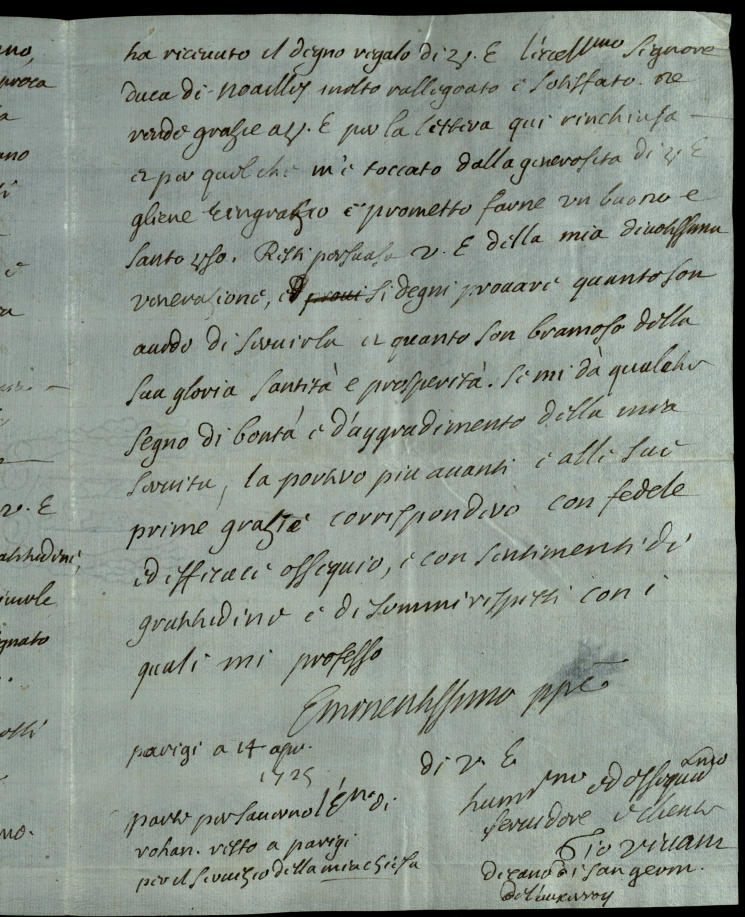 ha ricevuto il degno regalo di V. E l'eccell.mo signore
duca di noailles molto rallegrato e sodisfato. ne
rendo grazie a V. E per la lettera qui rinchiusa —
et per quel che m'è toccato dalla generosità di V E
gliene ringrazio e prometto farne un buono e
santo uso. Resti persuasa V. E della mia divotissima
venerazione, ed si degni provare quanto son
di servirla et quanto son bramoso della
sua gloria santità e prosperità. se mi dà qualche
segno di bontà e d'aggradimento della mia
servitu, la porterò più avanti e alle sue
prime grazie corrisponderò con fedele
ed efficace ossequio, e con sentimenti di
gratitudine e di sommi rispetti con i
quali mi professo
Eminentissimo ppe
parigi a 14 apr.
1725
di V. E
hum.mo ed osseq.mo
servidore
Gio
decano di san germ.
parte per l'Em.o di
rohan. resto a parigi
per il servizio della mia chiesa
no,
la
ano
è
V. E
gnato
no.